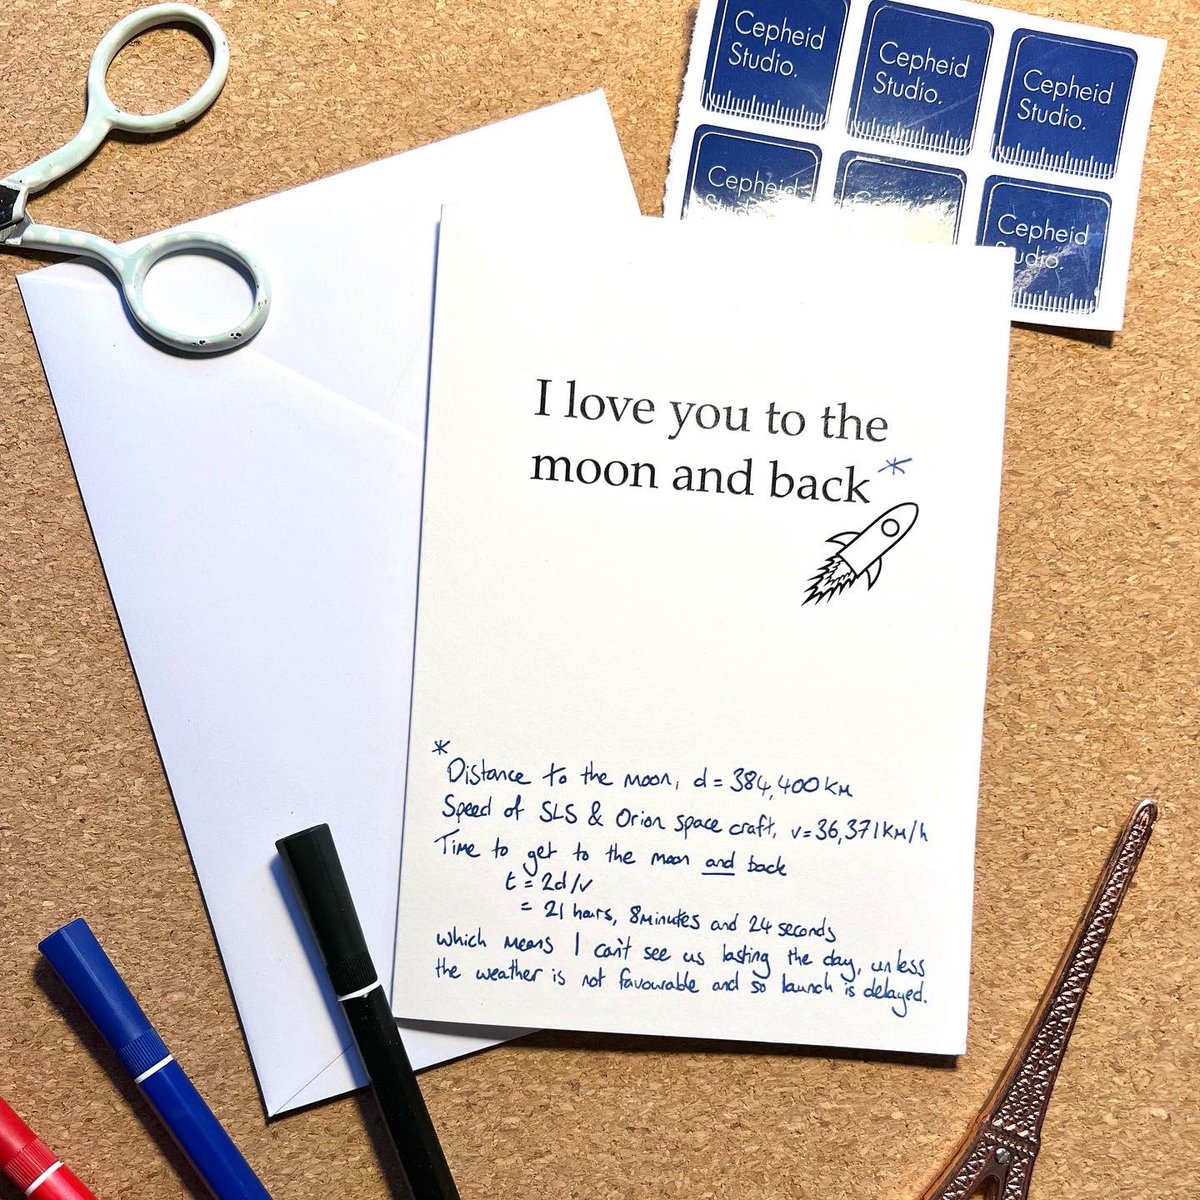 Cepheid
Studio.
Cepheid
Studio.
Cepheid
Studio.
Cepheid
Cepheid
Studio.
I love you to the
moon and back*
*
Distance to the moon, d = 384,400km
Speed of SLS & Orion space craft, v=36,371km/h
Time to get to the moon and back
t = 2d/v
= 21 hours, 8minutes and 24 seconds
which means I can't see us lasting the day, unless
the weather is not favourable and so launch is delayed.